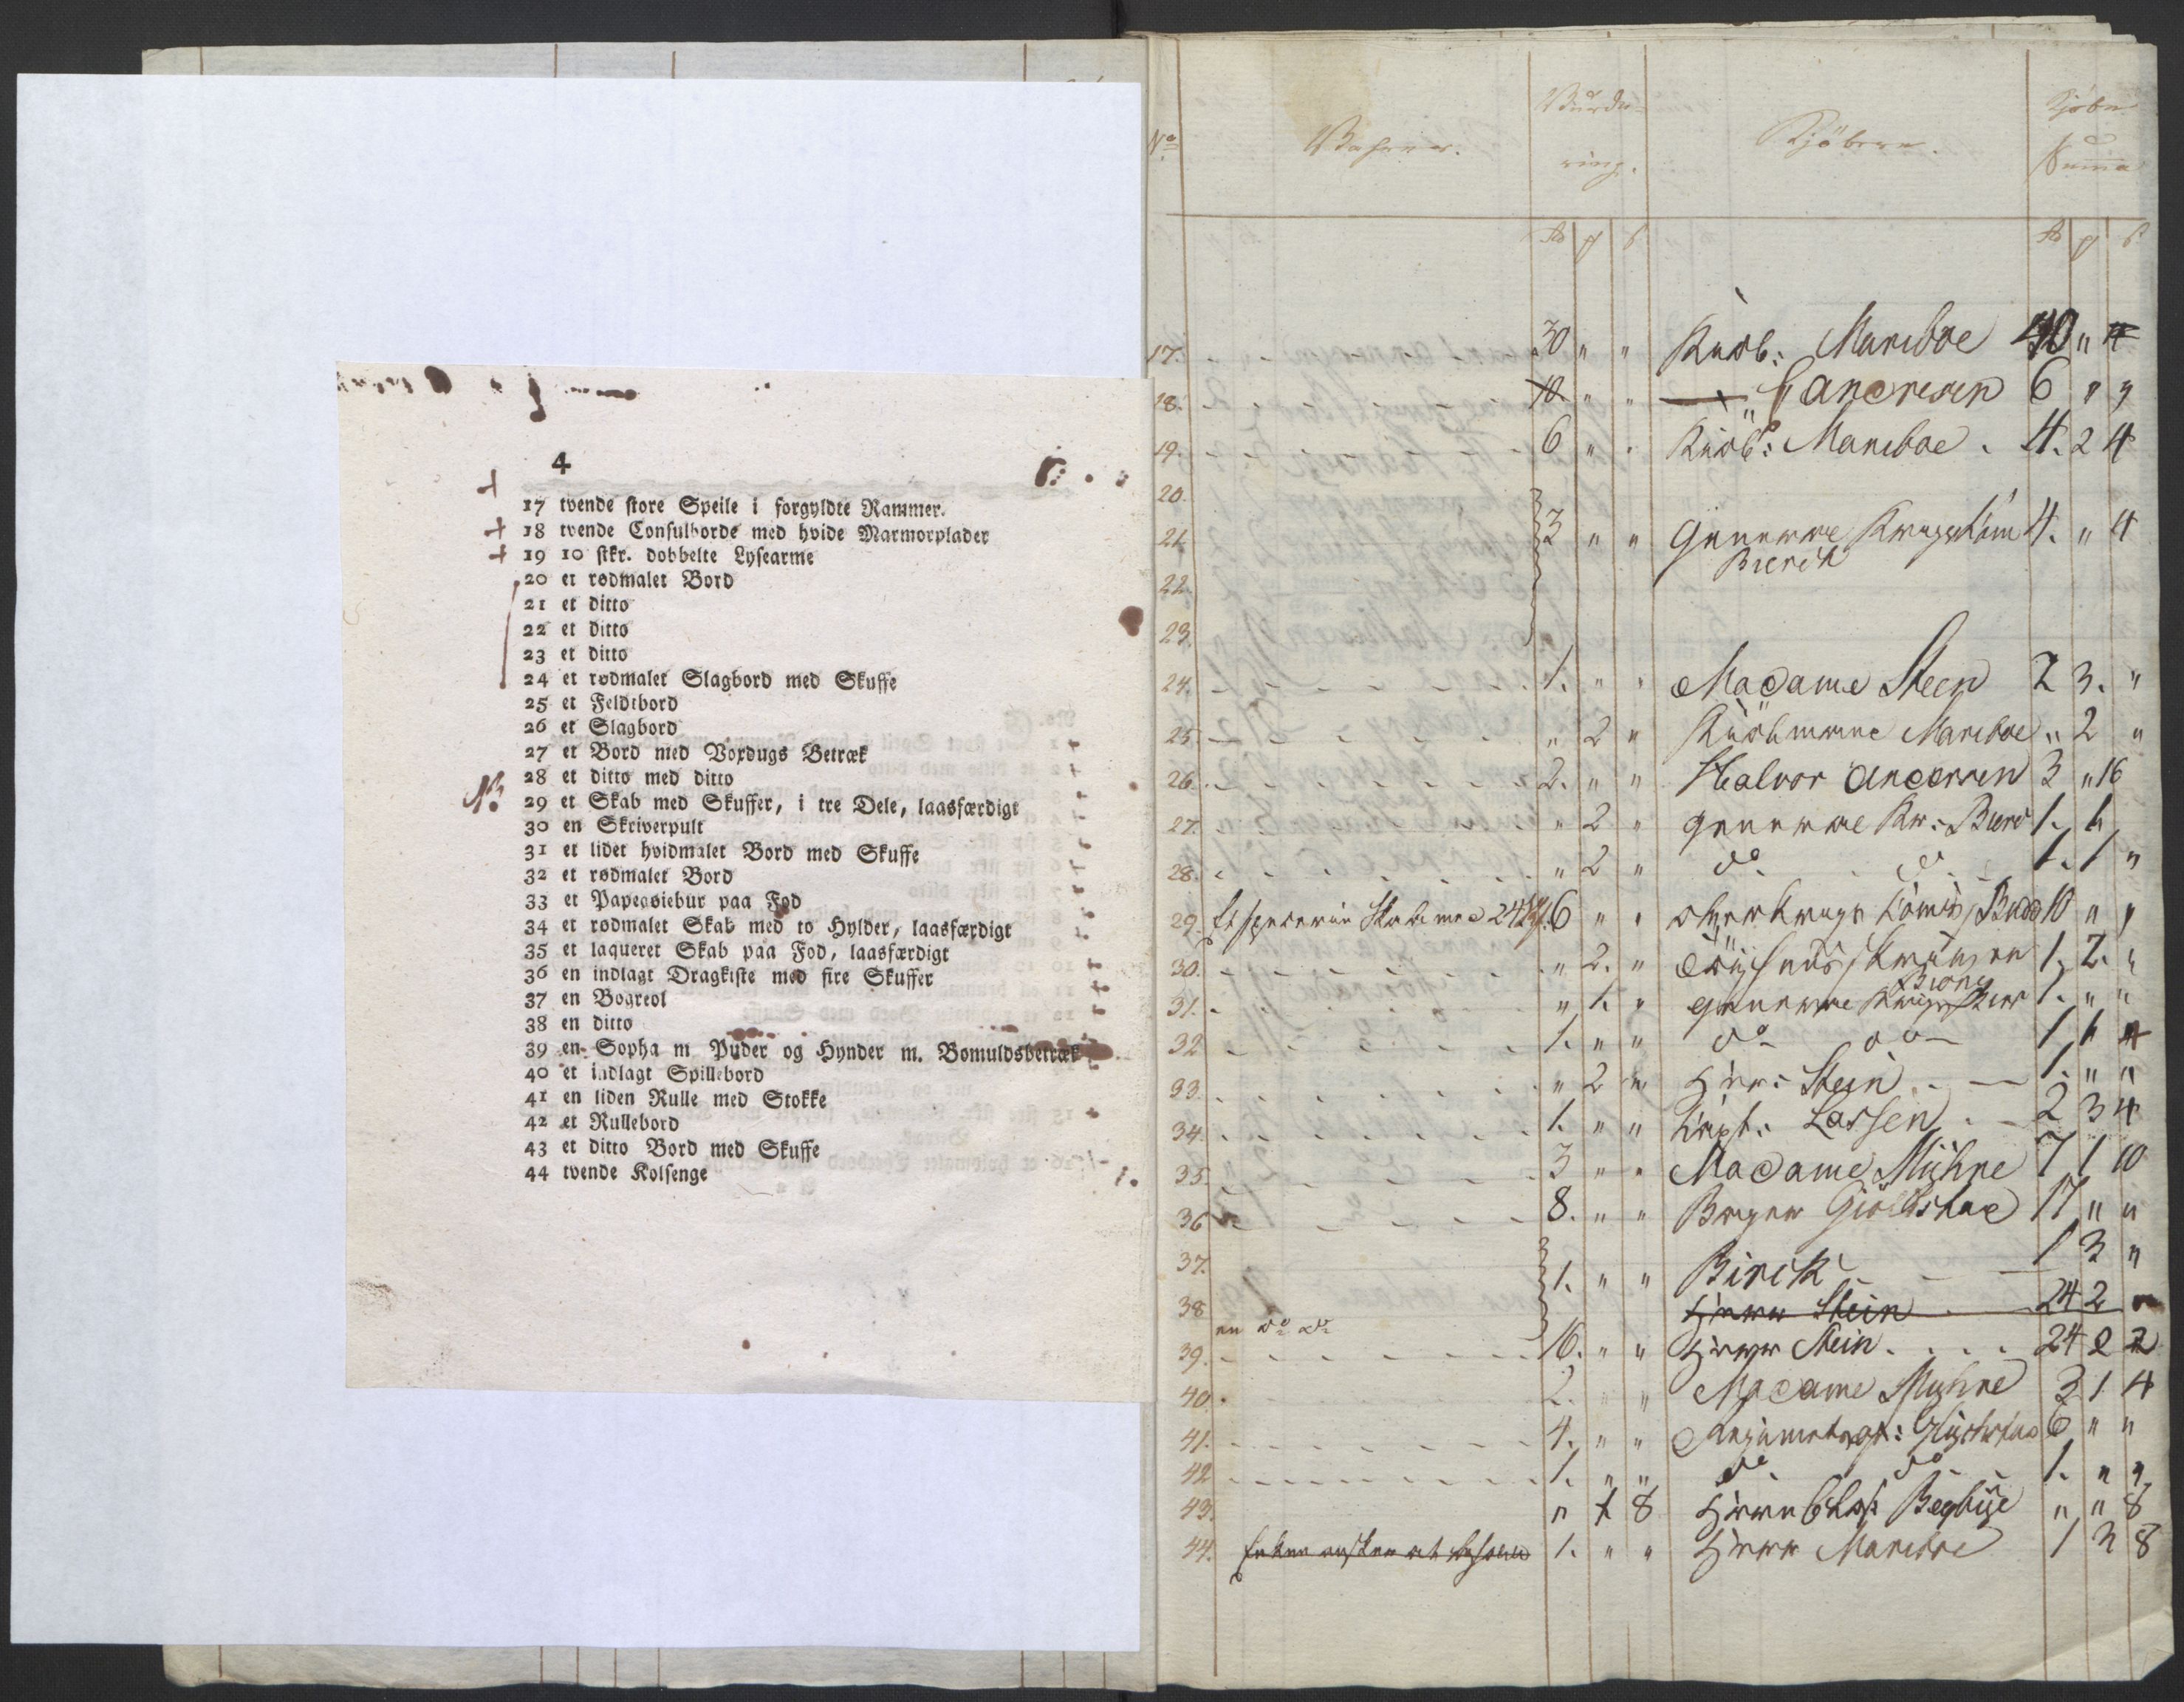 4
17 tvende store Speile i forgyldte Rammer.
18 tvende Consulborde med hvide Marmorplader
19 10 stkr. dobbelte Lysearme
20 et rødmalet Bord
21 et ditto
22 et ditto
23 et ditto
24 et rødmalet Slagbord med Skuffe
25 et Feldtbord
26 et Slagbord
27 et Bord med Voxdugs Betræk
28 et ditto med ditto
29 et Skab med Skuffer, i tre Dele, laasfærdigt
30 en Skriverpult
31 et lidet hvidmalet Bord med Skuffe
32 et rødmalet Bord
33 et Papegøiebur paa Fod
34 et rødmalet Skab med to Hylder, laasfærdigt
35 et laqueret Skab paa Fod, laasfærdigt
36 en indlagt Dragkiste med fire Skuffer
37 en Bogreol
38 en ditto
39 en Sopha m Puder og Hynder m. Bomuldsbetræk
40 et indlagt Spillebord
41 en liden Rulle med Stokke
42 et Rullebord
43 et ditto Bord med Skuffe
44 tvende Kolsenge
No Vahrer. Vurde- Kjøbere. Kjøbe
ring. Summa
17. 30 " " Kiøb: Mariboe 40 "
18. 10 " " Andresen 6 " "
19. 6 " " Kiøb: Mariboe . 4. 2 4
20.
21. 3 " " 4. " 4
22.
23.
24. 1. " " Madame Steen 2 3. "
25. " 2 " Kiøbmann Mariboe " 2 "
26. 2. " " Halvor Andersen 3 " 16
27. " 2 " 1. 1
28. " 2 " do do 1. 1 "
29. 6 " " 10 " "
30. " 2. " 1. 2. "
31. " 1. " 1. " "
32. 1. " " do do 1 1
33. " 2 " Herr Stein 1. " "
34. 1. " " Capt: Lassen 2 3 4
35. 3 " " Madame Mühne 7 1 10
36. 8. " " 17 " "
37. 1. " " Birch 1 3 "
38. en do do Herr Stein 24 2
39. 16. " " Herr Stein . . . . 24 2 2
40. 2. " " Madame Mühne 3 1 4
41. 4. " " 6 " "
42. 1. " " do do 1. " "
43. " 1 8 Begbije " " 8
44. 1. " " Herr Mariboe 1 3 8